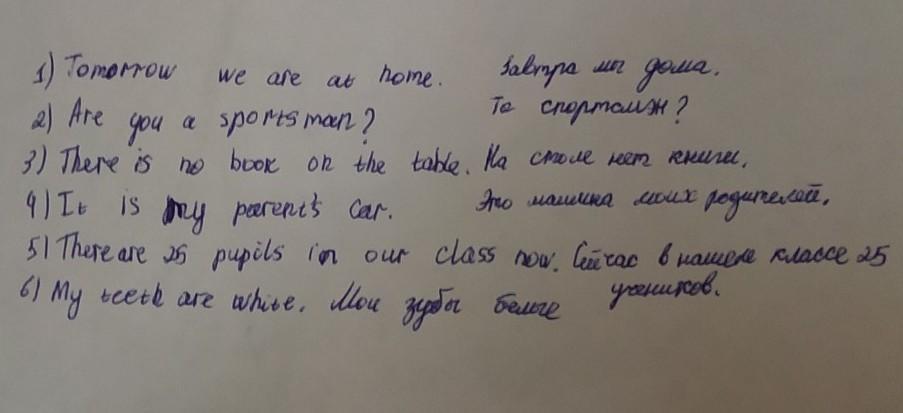 1) Tomorrow we are at home. Завтра мы дома.
2) Are you a sportsman? Те спортсмэн?
3) There is no book on the table. На столе нет книги.
4) It is my parent's car. Это машина моих родителей.
5) There are 25 pupils in our class now. Сейчас в нашем классе 25
учеников.
6) My teeth are white. Мои зубы белые